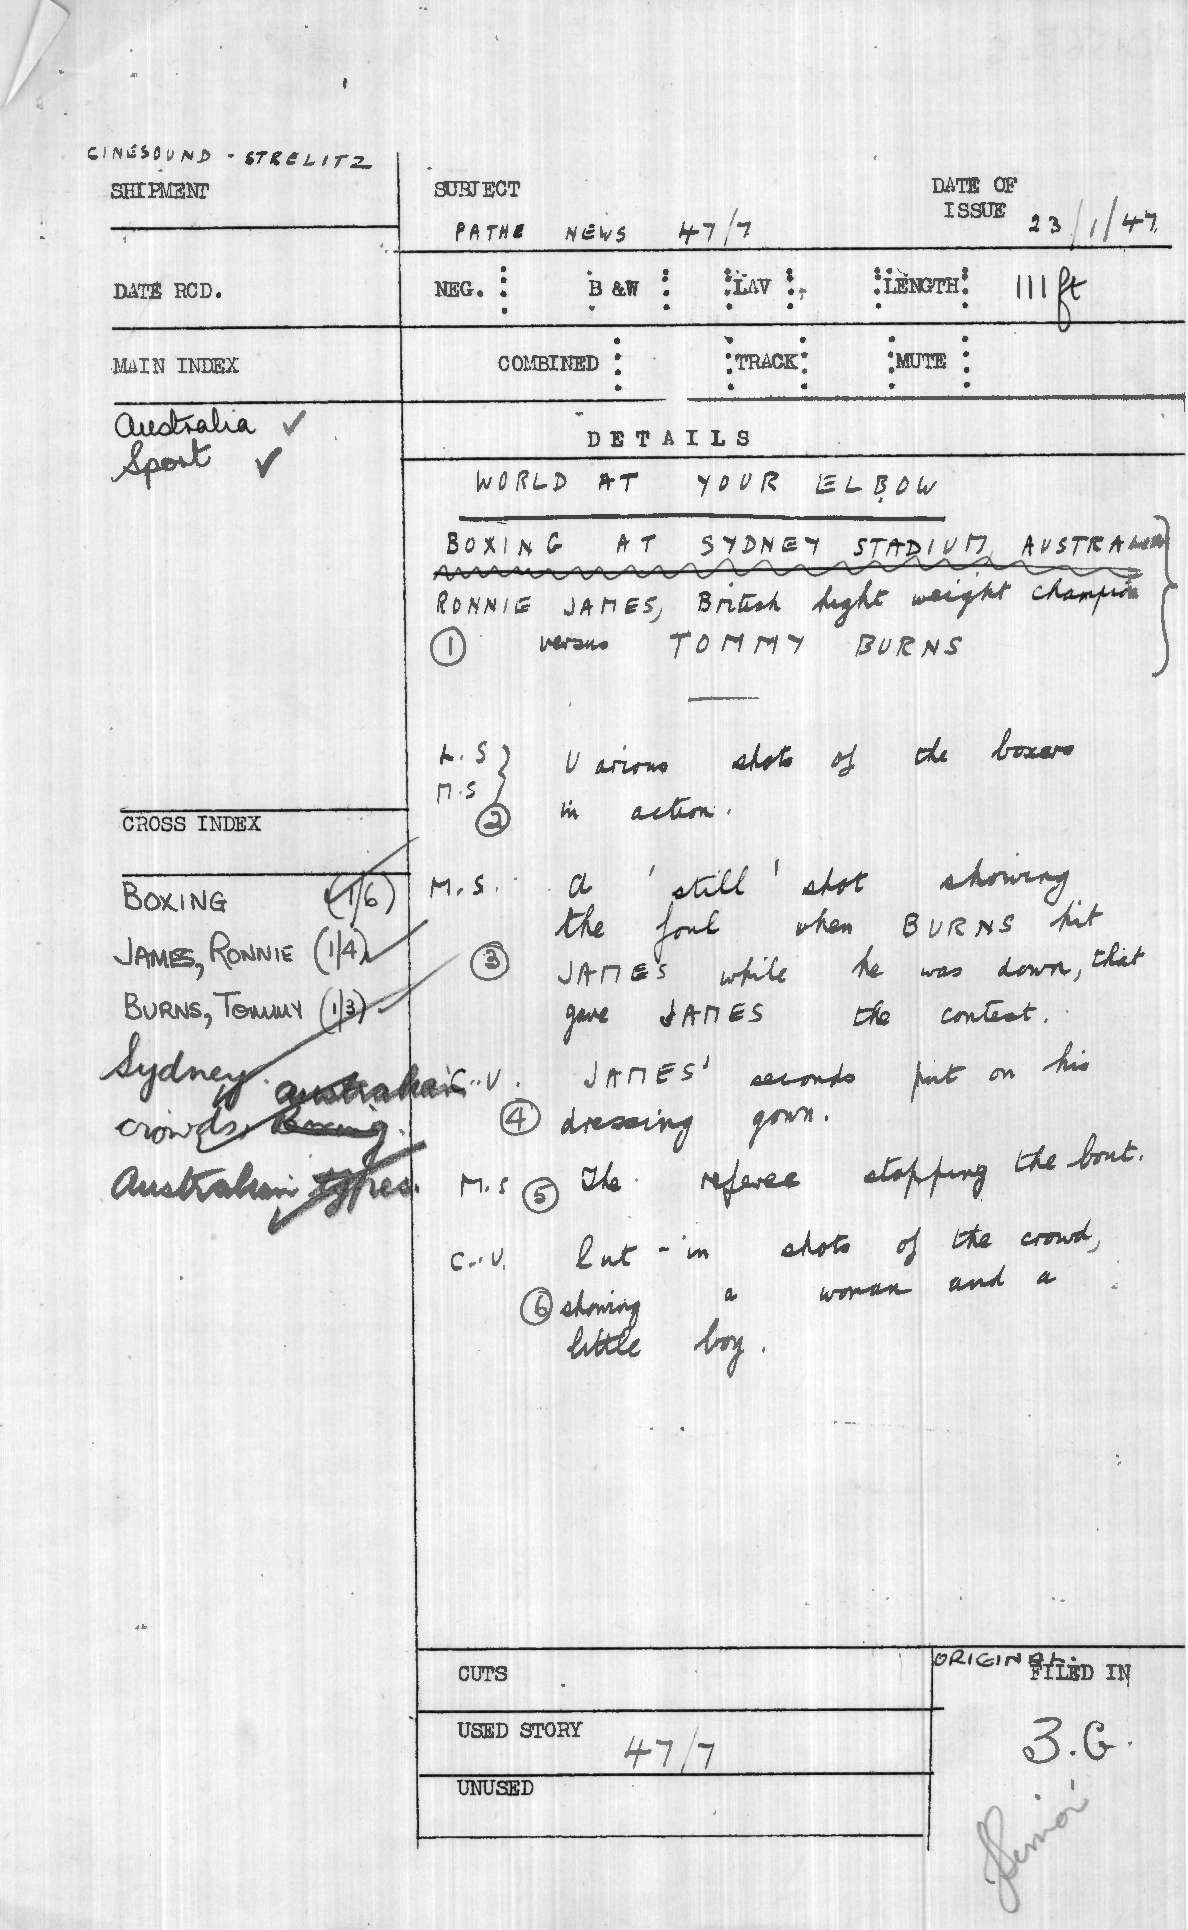 CINESOUND - STRELITZ
SHIPMENT
SUBJECT
PATHE NEWS 47/7
DATE OF
ISSUE 23/1/47
DATE RCD.
NEG. B &W LAV LENGTH 111 ft
MAIN INDEX
COMBINED TRACK MUTE
Australia ✓
Sport ✓
DETAILS
WORLD AT YOUR ELBOW
BOXING AT SYDNEY STADIUM,
RONNIE JAMES, British light weight champion
① versus TOMMY BURNS
L.S
M.S
Various shots of the boxers
② in action.
CROSS INDEX
BOXING (1/6)
JAMES, RONNIE (1/4)
BURNS, TOMMY (1/3)
Sydney. Australian
crowds. Boxing.
Australian types.
M.S. A 'still' shot showing
the foul when BURNS hit
③ JAMES while he was down, that
gave JAMES the contest.
C.U. JAMES' seconds put on his
④ dressing gown.
M.S ⑤ The referee stopping the bout.
C.U. Cut-in shots of the crowd,
⑥ showing a woman and a
little boy.
CUTS
ORIGINAL.
FILED IN
USED STORY 47/7
3.G.
UNUSED